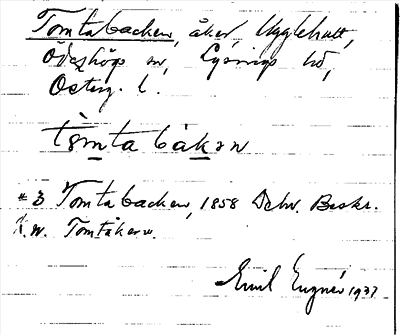 Tomtabacken, åker, Ugglehult,
Ödeshögs sn, Lysings hd,
Österg. l.
tomta bakən
# 3 Tomtabacken, 1858 Deln. Beskr.
n. Tomtåkern.
Emil Engnér 1937